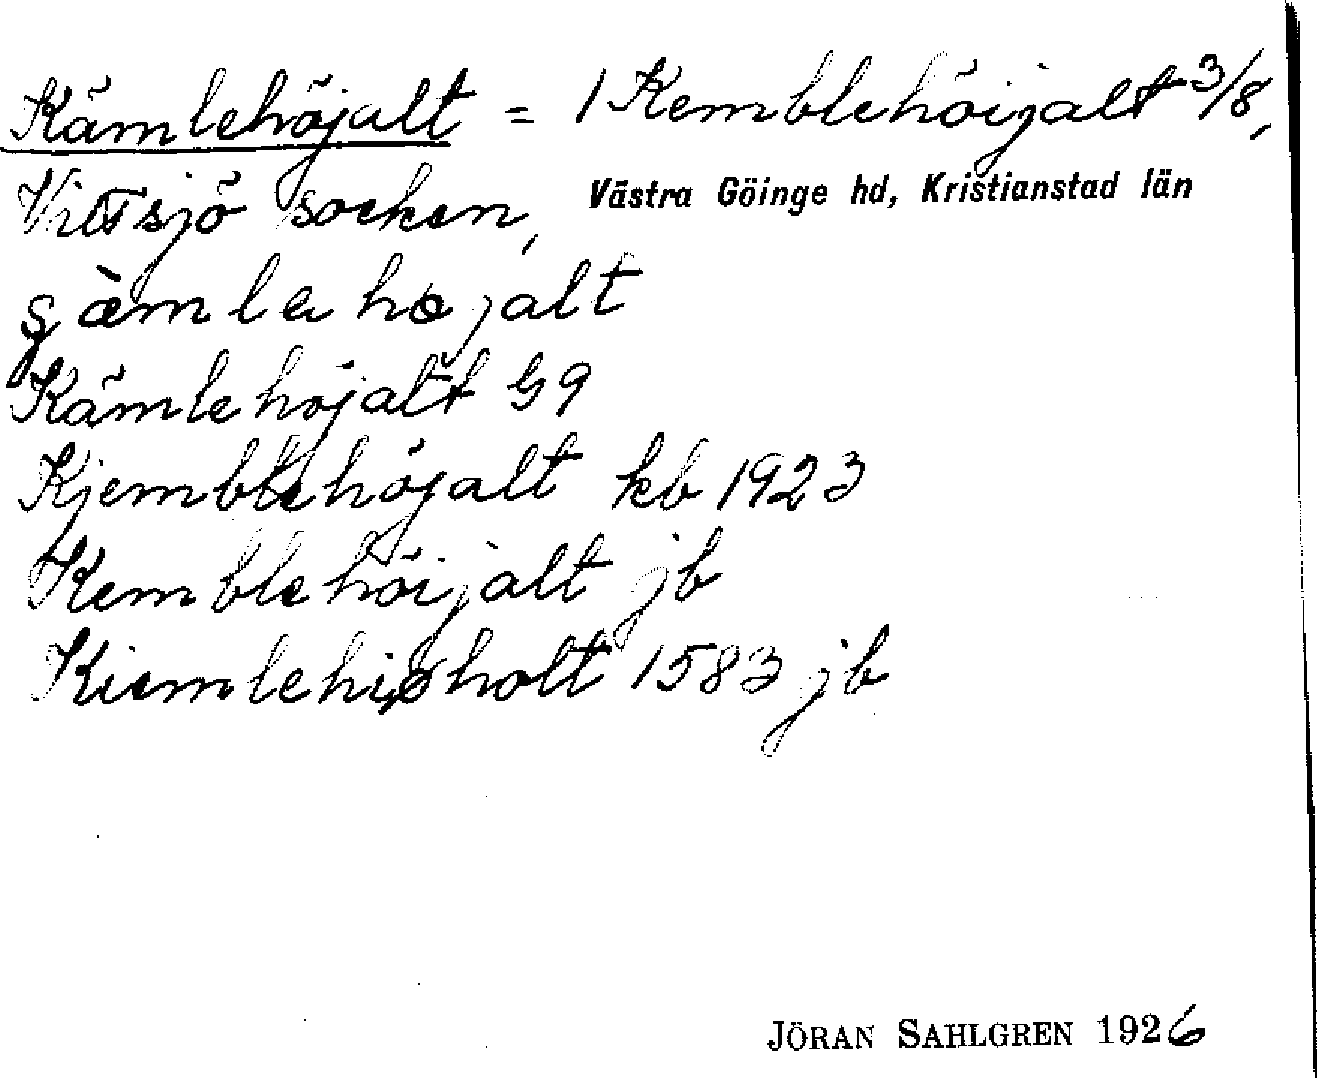 Kämlehöjalt = 1 Kemblehöijalt 3/8,
Vittsjö socken, Västra Göinge hd, Kristianstad län
Kämlehöjalt G9
Kjemblehöjalt kb 1923
Kemblehöijalt jb
1583 jb
JÖRAN SAHLGREN 1926